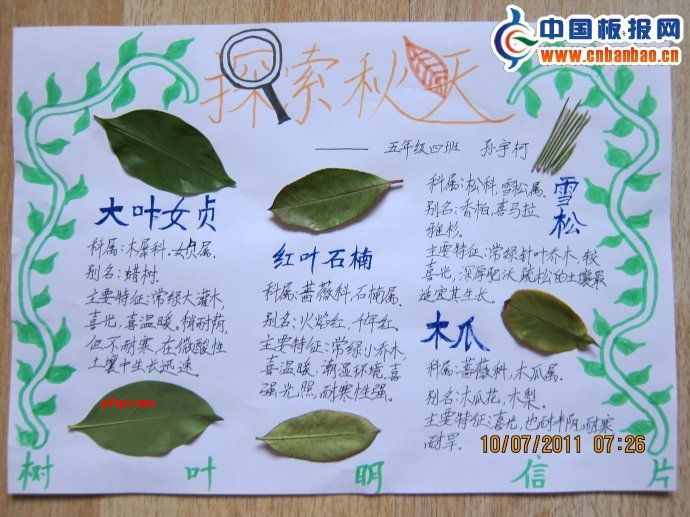 中国板报网
www.cnbanbao.cn
探索秋天
——五年级四班 孙宇柯
大叶女贞
科属:木犀科.女贞属.
别名:蜡树.
主要特征:常绿大灌木,
喜光,喜温暖。稍耐荫,
但不耐寒,在微酸性
土壤中生长迅速
红叶石楠
科属:蔷薇科,石楠属.
别名:火焰红,千年红.
主要特征:常绿小乔木,
喜温暖、潮湿环境,喜
强光照,耐寒性强。
雪松
科属:松科,雪松属.
别名:香柏,喜马拉
雅杉.
主要特征:常绿针叶乔木,较
喜光,深厚肥沃、疏松的土壤最
适宜其生长。
木瓜
科属:蔷薇科,木瓜属.
别名:木瓜花,木梨.
主要特征:喜光,也耐半阴,耐寒
耐旱。
phpceo
10/07/2011 07:26
树叶明信片